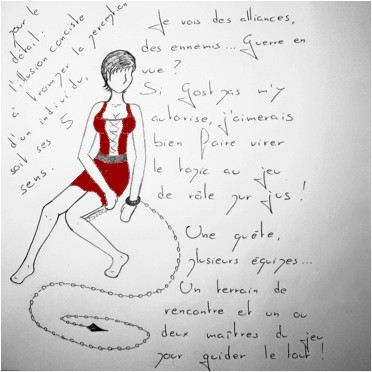 pour le
détail:
l'illusion consiste
à tromper la perception
d'un individu,
soit ses 5
sens.
Je vois des alliances,
des ennemis... Guerre en
vue ?
Si Gost pas m'y
autorise, j'aimerais
bien faire virer
le topic au jeu
de rôle pur jus !
Une quête,
plusieurs équipes...
Un terrain de
rencontre et un ou
deux maîtres du jeu
pour guider le tout !